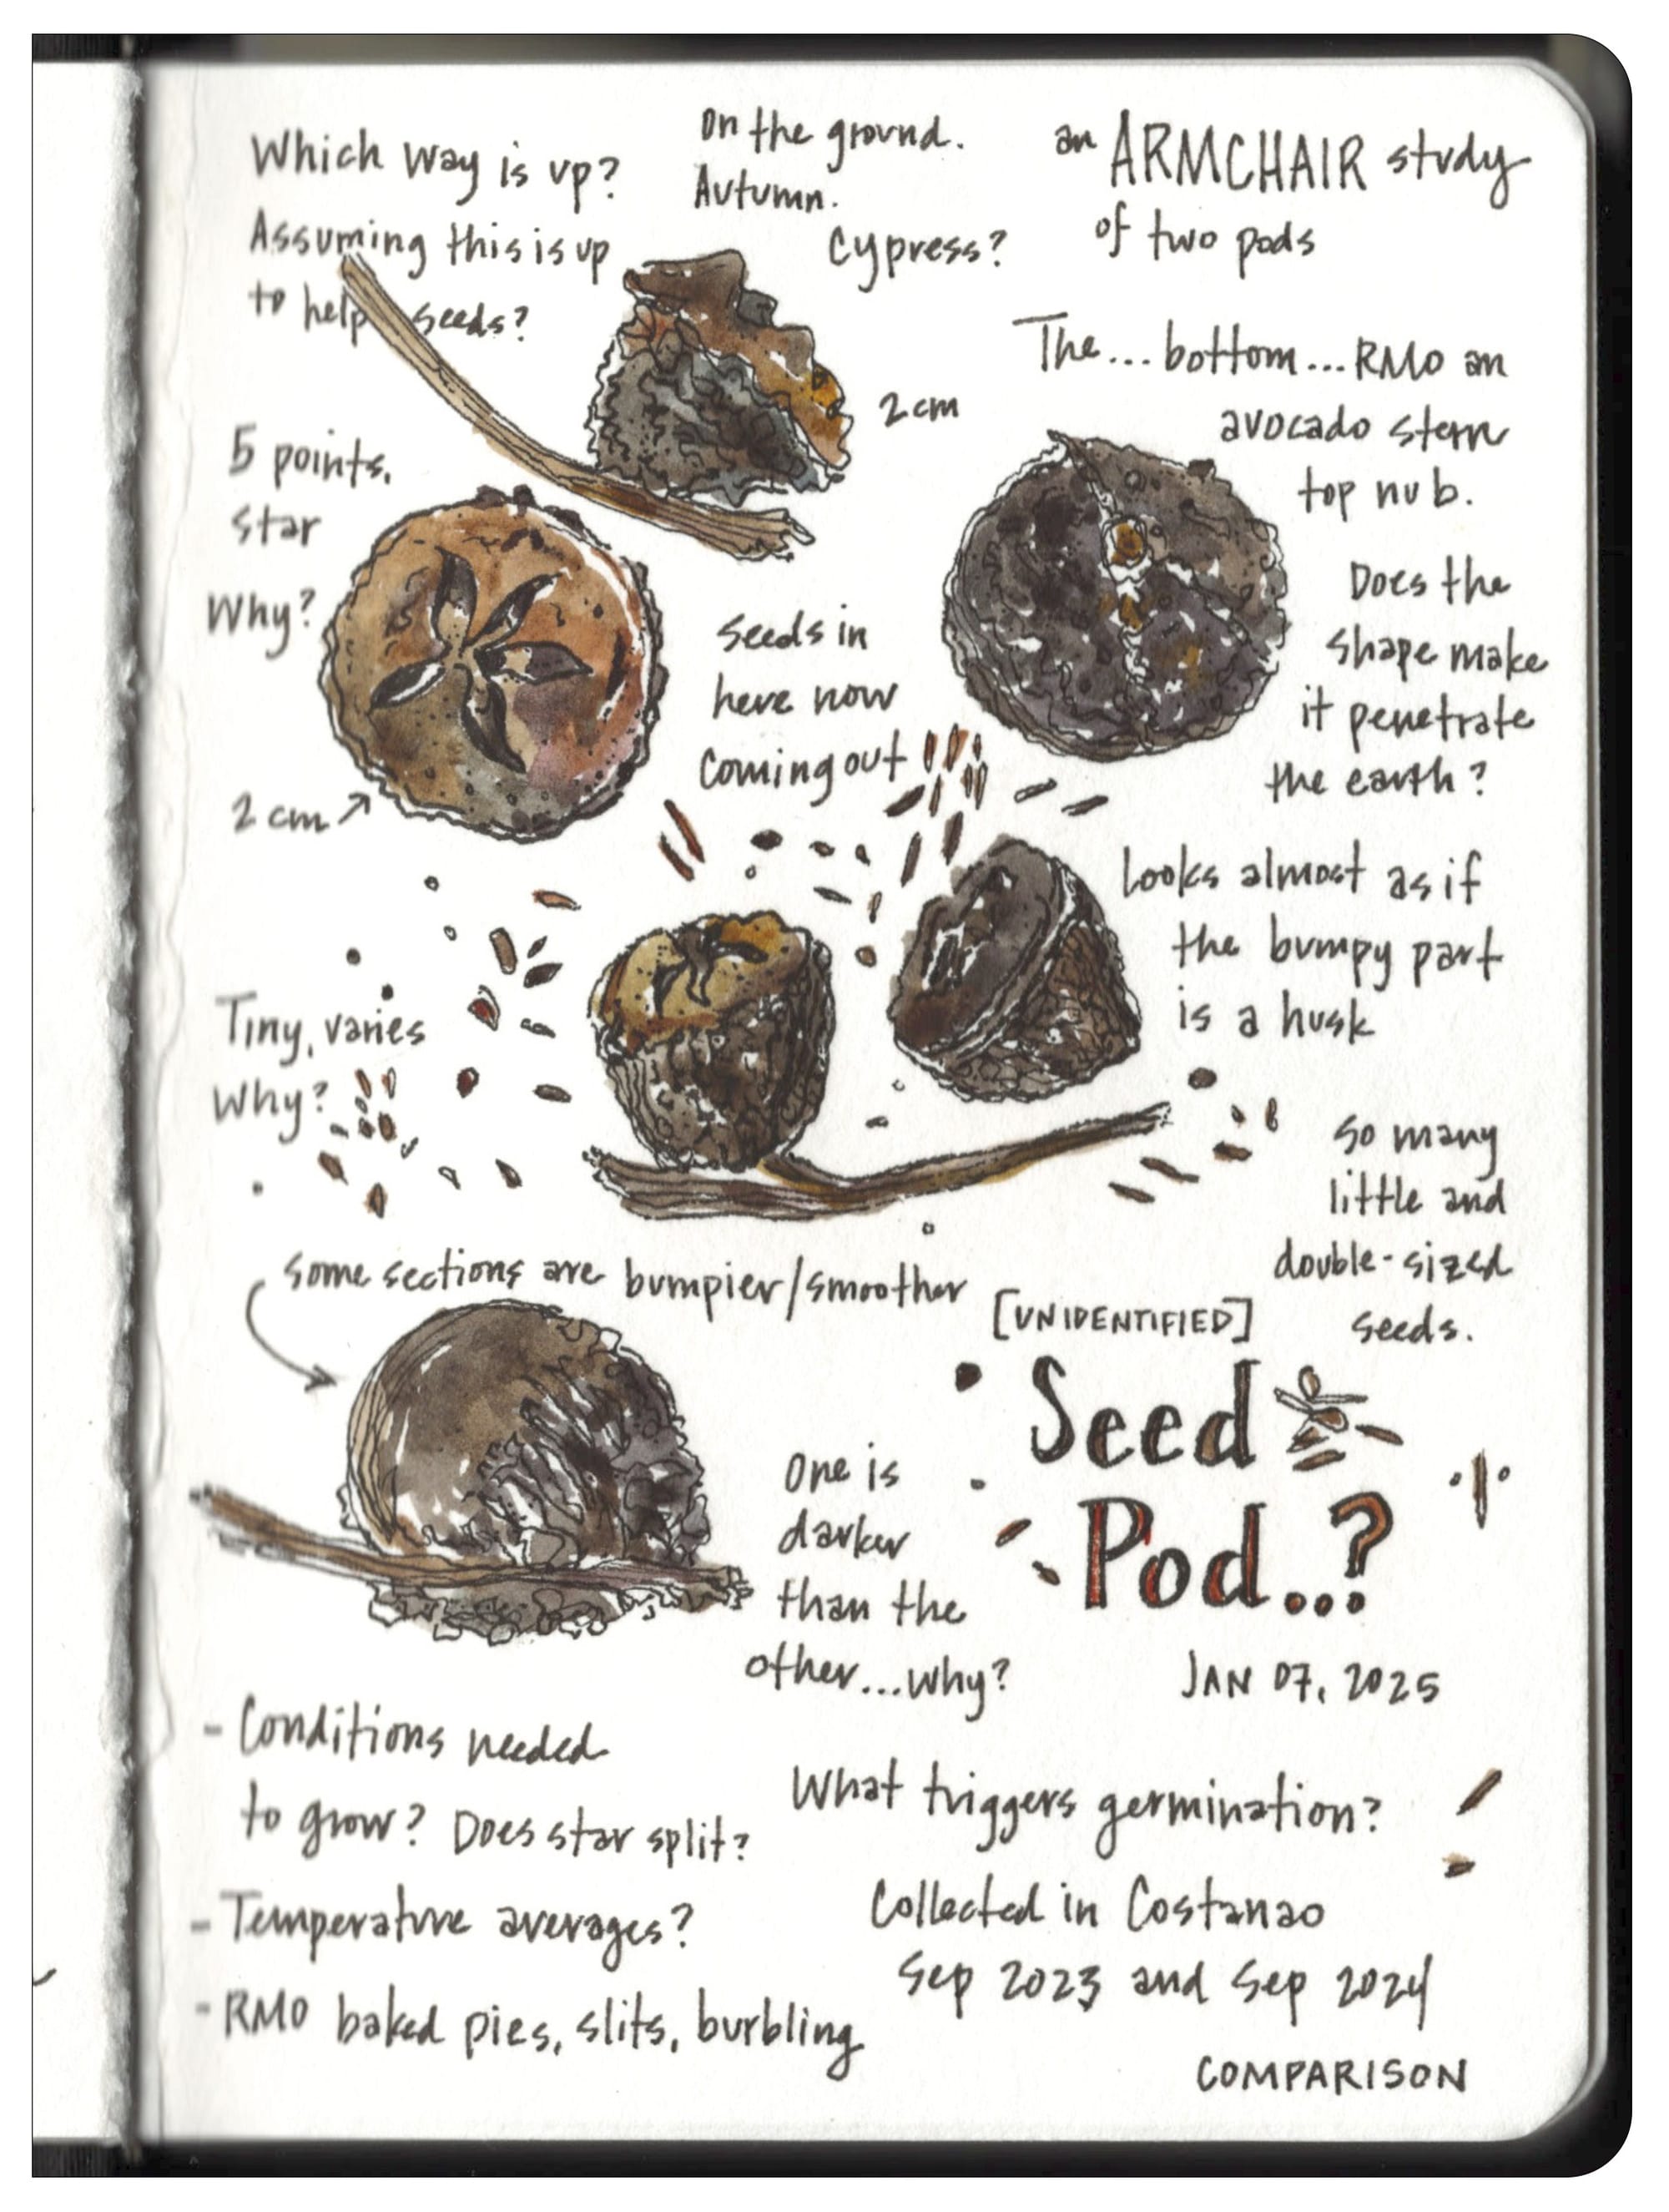 Which way is up?
Assuming this is up
to help seeds?
On the ground.
Autumn.
Cypress?
an ARMCHAIR study
of two pods
2 cm
The... bottom... RMO an
avocado stem
top nub.
5 points.
star
Why?
2 cm
Seeds in
here now
coming out
Does the
shape make
it penetrate
the earth?
Looks almost as if
the bumpy part
is a husk
Tiny, varies
Why?
so many
little and
double-sized
seeds.
Some sections are bumpier/smoother
[UNIDENTIFIED]
Seed
Pod..?
JAN 07, 2025
One is
darker
than the
other... why?
- Conditions needed
to grow? Does star split?
- Temperature averages?
- RMO baked pies, slits, burbling
What triggers germination?
Collected in Costanao
Sep 2023 and Sep 2024
COMPARISON